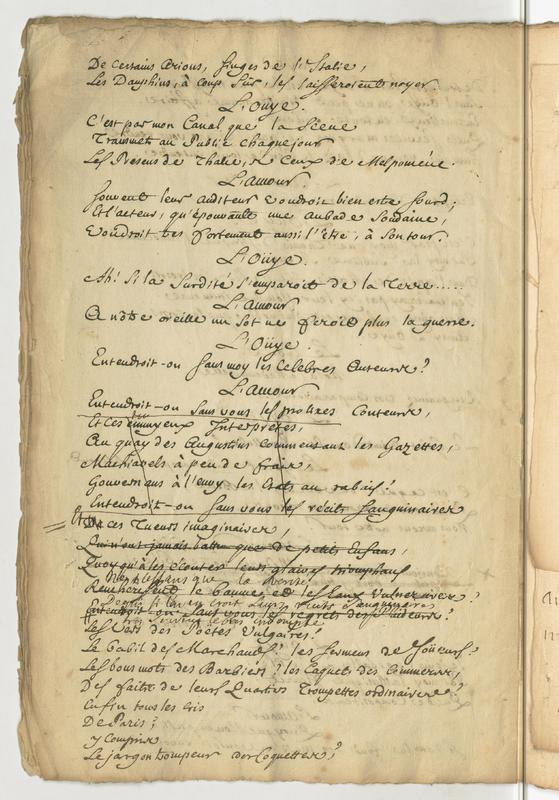 De certains Arions, Singes de l'Italie,
Les Dauphins, à coup Sûr, les laisseroient noyer.
L'Oüye.
C'est par mon Canal que la Scene
Transmet au Public chaque jour
Les Presens de Thalie, & Ceux de Melpomene.
L'Amour.
Souvent leur auditeur voudroit bien estre Sourd;
Et l'acteur, qu'épouvante une aubade Soudaine,
Voudroit tres fortement aussi l'être, à Son tour.
L'Oüye.
Ah! Si la Surdité S'emparoit de la Terre.....
L'Amour
A notre oreille un Sot ne feroit plus la guerre.
L'Oüye.
Entendroit-on Sans moy les Celebres Auteurs?
L'Amour
Entendroit-on Sans vous les prolixes Conteurs,
Et Ces ennuyeux Interpretes,
Au quay des Augustins commentant les Gazettes,
Machiavels à peu de frais,
Gouvernans à l'envy les Etats au rabais!
Entendroit-on Sans vous les récits Sanguinaires
De ces Tueurs imaginaires,
Qui n'ont jamais battu que de petits Enfans,
Quoy qu'à les écouter leurs glaives triomphans
Rencherissent le baume, et les Eaux Vulneraires?
Entendroit-on Sans vous les regrets des
Les Vers des Poëtes Vulgaires!
Le babil des Marchands! les Sermens de Joüeurs!
Les bons mots des Barbiers! les Caquets des Commeres,
Des faits de leurs Quartiers Trompettes ordinaires?
Enfin tous les Cris
De Paris;
Y Compris
Le jargon trompeur des Coquettes?